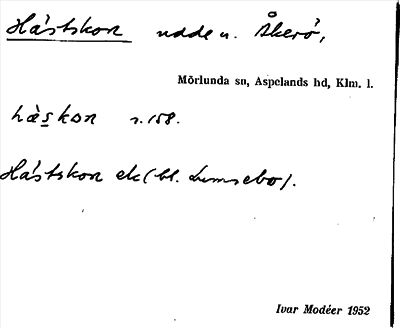 Hästskon udde u. Åkerö,
Mörlunda sn, Aspelands hd, Klm. l.
hæskon s. 158.
Hästskon ek (bl. Lumsebo).
Ivar Modéer 1952